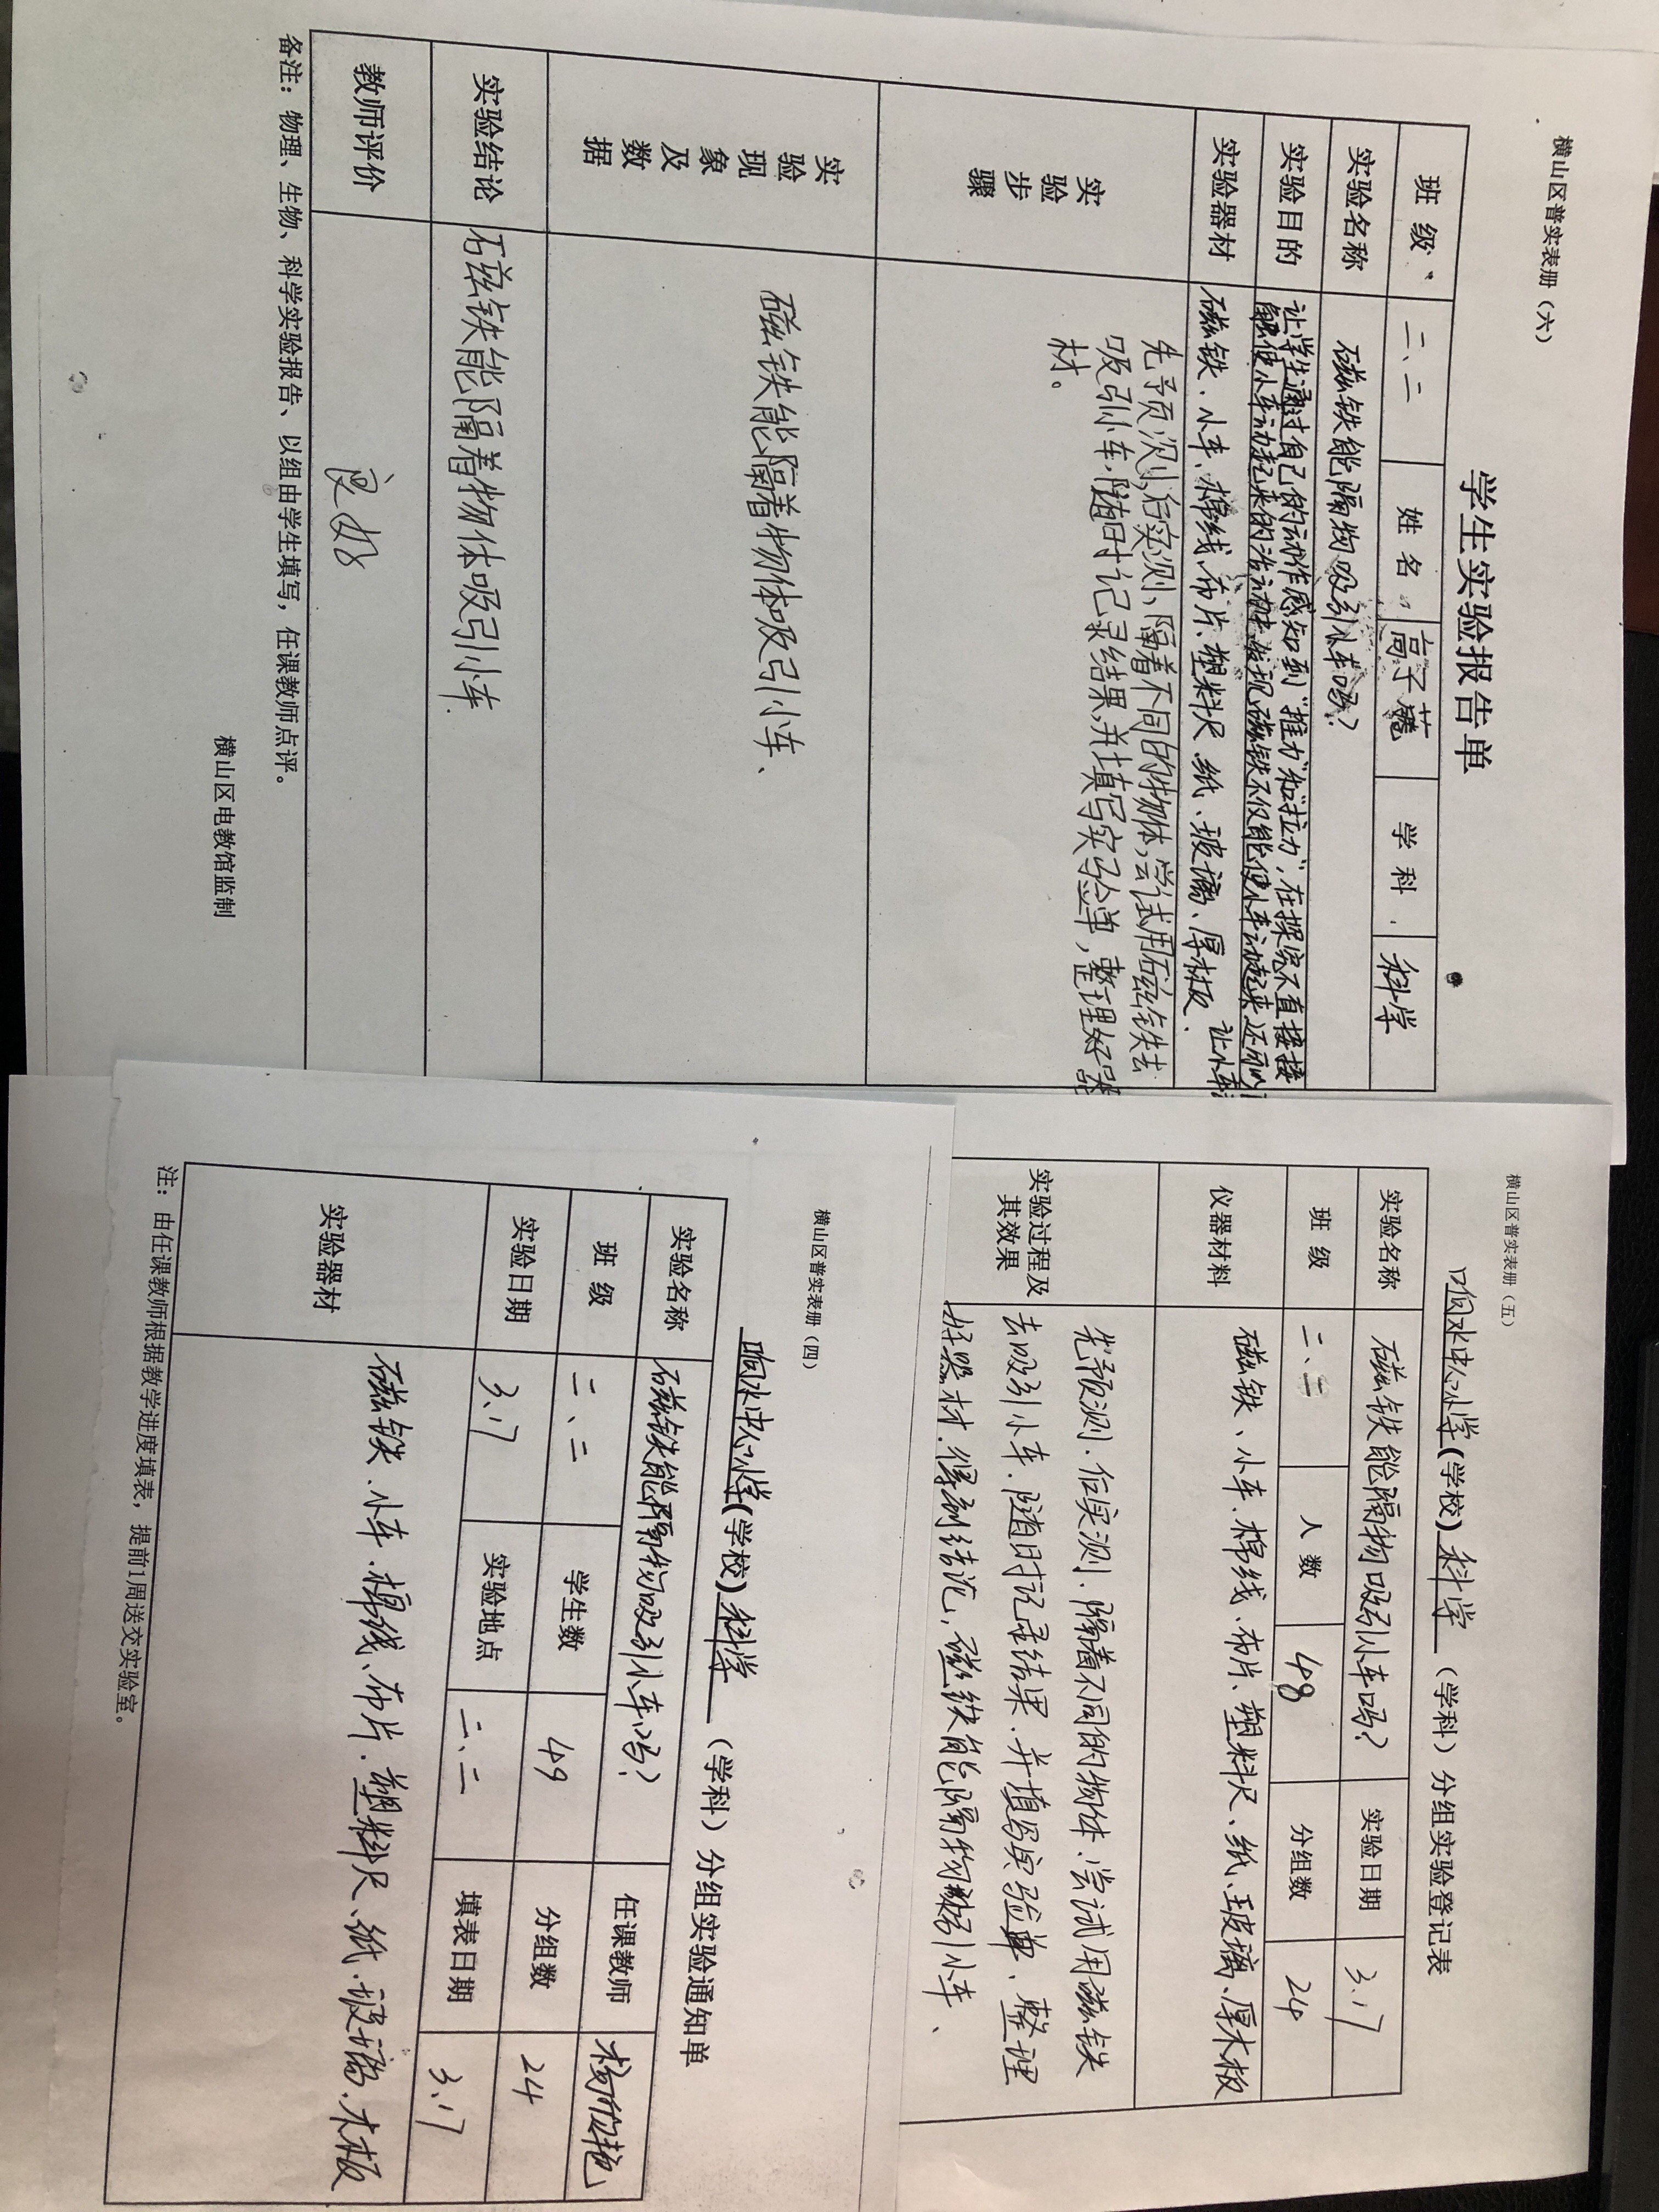 横山区普实表册（六）
学生实验报告单
班 级 二、二 姓 名 高子 学 科 科学
实验名称 磁铁能隔物吸引小车吗？
实验目的 让学生通过自己的动作感知到“推力”和“拉力”，在探究不直接接
触使小车动起来的活动中，发现磁铁不仅能使小车动起来还可以
让小车
实验器材 磁铁、小车、棉线、布片、塑料尺、纸、玻璃、厚木板.
实验步骤 先予页测,后实测,隔着不同的物体,尝试用磁铁去
吸引小车,随时记录结果,并填写实验单,整理好器
材。
实验现象及数据 磁铁能隔着物体吸引小车、
实验结论 磁铁能隔着物体吸引小车.
教师评价 良好
备注：物理、生物、科学实验报告、以组由学生填写，任课教师点评。
横山区电教馆监制
横山区普实表册（五）
响水中心小学(学校) 科学 （学科）分组实验登记表
实验名称 磁铁能隔物吸引小车吗？ 实验日期 3.17
班 级 二、二 人 数 48 分组数 24
仪器材料 磁铁、小车、棉线、布片、塑料尺、纸、玻璃、厚木板
实验过程及其效果 先预测.后实测.隔着不同的物体.尝试用磁铁
去吸引小车.随时记录结果.并填写实验单、整理
好器材.得到结论,磁铁能隔物吸引小车、
横山区普实表册（四）
响水中心小学(学校) 科学 （学科）分组实验通知单
实验名称 磁铁能隔物吸引小车吗？ 任课教师
班 级 二、二 学生数 49 分组数 24
实验日期 3.17 实验地点 二、二 填表日期 3.17
实验器材 磁铁、小车、棉线、布片、塑料尺、纸、玻璃、木板
注：由任课教师根据教学进度填表，提前1周送交实验室。